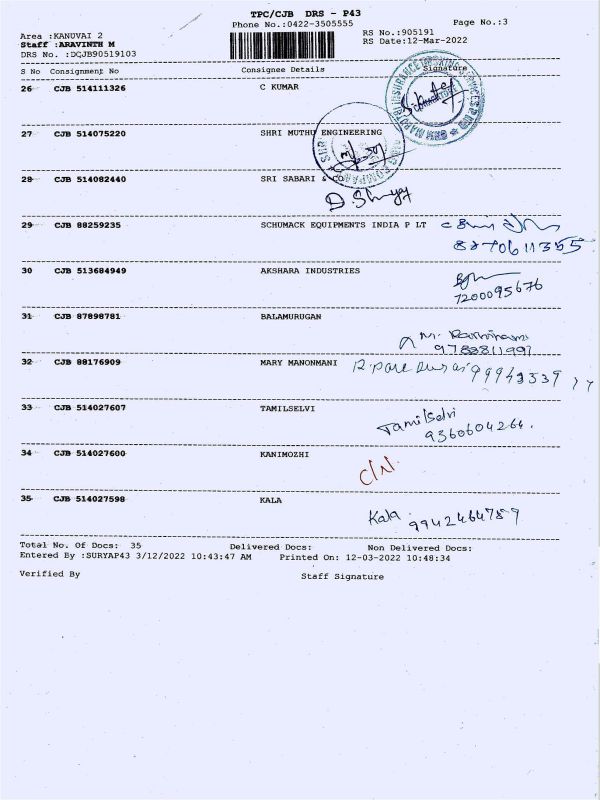 TPC/CJB DRS - P43
Phone No.:0422-3505555
Page No.:3
Area :KANUVAI 2
RS No.:905191
Staff :ARAVINTH M
RS Date:12-Mar-2022
DRS No. :DCJB90519103
S No Consignment No Consignee Details Signature
26 CJB 514111326 C KUMAR
27 CJB 514075220 SHRI MUTHU ENGINEERING
28 CJB 514082440 SRI SABARI & CO
29 CJB 88259235 SCHUMACK EQUIPMENTS INDIA P LT
8870611355
30 CJB 513684949 AKSHARA INDUSTRIES
7200095676
31 CJB 87898781 BALAMURUGAN
M.
32 CJB 88176909 MARY MANONMANI
33 CJB 514027607 TAMILSELVI
Tamilselvi
9360604264.
34 CJB 514027600 KANIMOZHI
C/N.
35 CJB 514027598 KALA
Kala
9942464789
Total No. Of Docs: 35 Delivered Docs: Non Delivered Docs:
Entered By :SURYAP43 3/12/2022 10:43:47 AM Printed On: 12-03-2022 10:48:34
Verified By Staff Signature